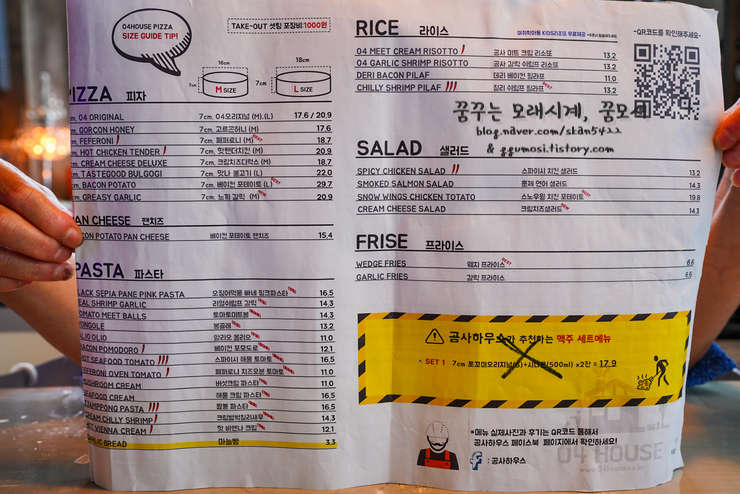 04HOUSE PIZZA
SIZE GUIDE TIP!
TAKE-OUT 셋팅 포장비:1000원
16cm
18cm
7cm
M SIZE
7cm
L SIZE
PIZZA 피자
04 ORIGINAL 7cm, 04오리지널 (M).(L) 17.6 / 20.9
GORGON HONEY 7cm, 고르곤허니 (M) 17.6
FEFERONI 7cm, 페퍼로니 (M) 18.7
HOT CHICKEN TENDER 7cm, 핫텐더치킨 (M) 20.9
CREAM CHEESE DELUXE 7cm, 크림치즈디럭스 (M) 18.7
TASTEGOOD BULGOGI 7cm, 맛나 불고기 (L) 22.0
BACON POTATO 7cm, 베이컨 포테이토 (L) 29.7
GREASY GARLIC 7cm, 느끼 갈릭 (M) 20.9
PAN CHEESE 팬치즈
CON POTATO PAN CHEESE 베이컨 포테이토 팬치즈 15.4
PASTA 파스타
LACK SEPIA PANE PINK PASTA 오징어먹물 빠네 핑크파스타 16.5
EAL SHRIMP GARLIC 리얼쉬림프 갈릭 14.3
TOMATO MEET BALLS 토마토미트볼 14.3
ONGOLE 봉골레 13.2
ALIO OLIO 알리오 올리오 11.0
BACON POMODORO 베이컨 포모도로 12.1
HOT SEAFOOD TOMATO 스파이시 해물 토마토 16.5
EFFERONI OVEN TOMATO 페퍼로니 치즈오븐 토마토 11.0
MUSHROOM CREAM 버섯크림 파스타 11.0
SEAFOOD CREAM 해물 크림 파스타 16.5
JZAMPPONG PASTA 짬뽕 파스타 16.5
CREAM CHLLY SHRIMP 크림빕박칠리새우 14.3
HOT VIENNA CREAM 핫 비엔나 크림 12.1
GARLIC BREAD 마늘빵 3.3
RICE 라이스
04 MEET CREAM RISOTTO 공사 미트 크림 리소또 13.2
04 GARLIC SHRIMP RISOTTO 공사 갈릭 쉬림프 리소또 13.2
DERI BACON PILAF 데리 베이컨 필라프 11.0
CHILLY SHRIMP PILAF 칠리 쉬림프 필라프 13.2
-QR코드를 확인해주세요-
꿈꾸는 모래시계, 꿈모
blog.naver.com/skan5422
& ggumosi.tistory.com
SALAD 샐러드
SPICY CHICKEN SALAD 스파이시 치킨 샐러드 13.2
SMOKED SALMON SALAD 훈제 연어 샐러드 14.3
SNOW WINGS CHICKEN TOTATO 스노우윙 치킨 포테이토 19.8
CREAM CHEESE SALAD 크림치즈샐러드 14.3
FRISE 프라이스
WEDGE FRIES 웨지 프라이스 6.6
GARLIC FRIES 갈릭 프라이스 6.6
공사하우스가 추천하는 맥주 세트메뉴
* SET 1 7cm 포꼬미오리지널(S)+시나몬(500ml) x2잔 = 17.9
*메뉴 실제사진과 후기는 QR코드 통해서
공사하우스 페이스북 페이지에서 확인하세요!
f : 공사하우스
04 HOUSE
www.04house.co.kr